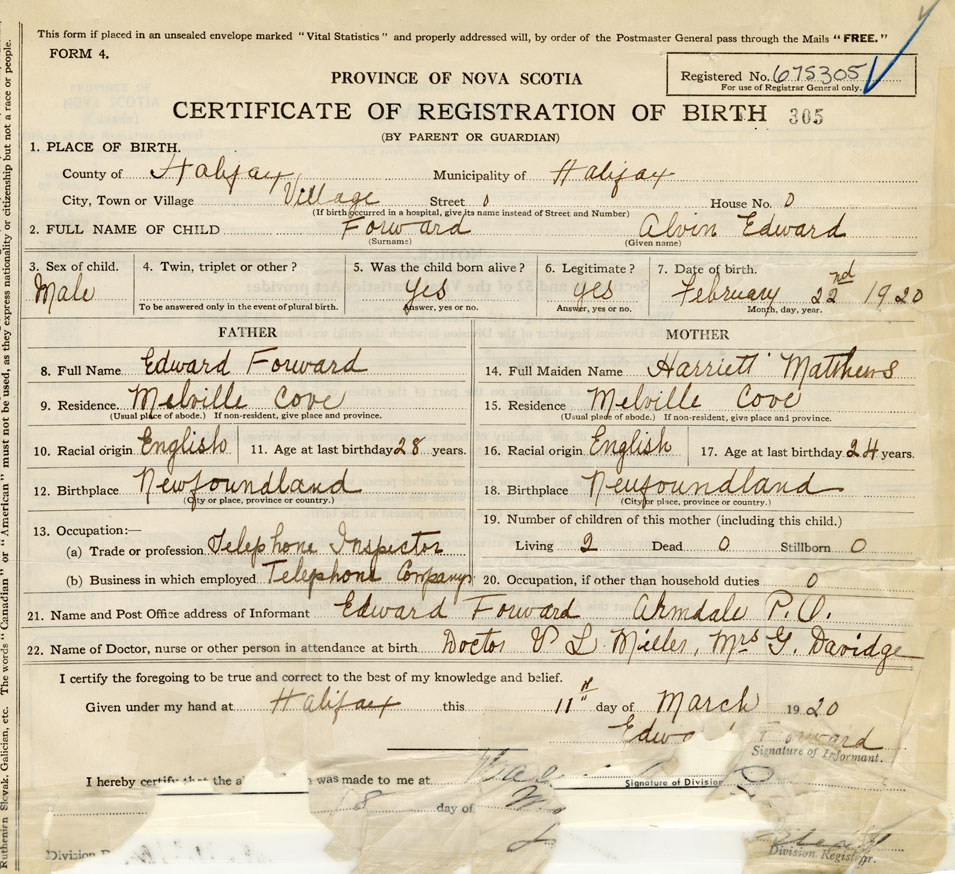 This form if placed in an unsealed envelope marked "Vital Statistics" and properly addressed will, by order of the Postmaster General pass through the Mails "FREE."
FORM 4.
Registered No. 675305
For use of Registrar General only.
PROVINCE OF NOVA SCOTIA
CERTIFICATE OF REGISTRATION OF BIRTH 305
(BY PARENT OR GUARDIAN)
1. PLACE OF BIRTH.
County of Halifax Municipality of Halifax
City, Town or Village Village Street 0 House No. 0
(If birth occurred in a hospital, give its name instead of Street and Number)
2. FULL NAME OF CHILD Forward Alvin Edward
(Surname) (Given name)
3. Sex of child. 4. Twin, triplet or other? 5. Was the child born alive? 6. Legitimate? 7. Date of birth.
Male yes yes February 22nd 1920
To be answered only in the event of plural birth. Answer, yes or no. Answer, yes or no. Month, day, year.
FATHER MOTHER
8. Full Name Edward Forward 14. Full Maiden Name Harriett Matthews
9. Residence Melville Cove 15. Residence Melville Cove
(Usual place of abode.) If non-resident, give place and province. (Usual place of abode.) If non-resident, give place and province.
10. Racial origin English 11. Age at last birthday 28 years. 16. Racial origin English 17. Age at last birthday 24 years.
12. Birthplace Newfoundland 18. Birthplace Newfoundland
(City or place, province or country.) (City or place, province or country.)
13. Occupation:— 19. Number of children of this mother (including this child.)
(a) Trade or profession Telephone Inspector Living 2 Dead 0 Stillborn 0
(b) Business in which employed Telephone Company 20. Occupation, if other than household duties 0
21. Name and Post Office address of Informant Edward Forward Armdale P.O.
22. Name of Doctor, nurse or other person in attendance at birth Doctor L. Miller, Mrs G. Davidge
I certify the foregoing to be true and correct to the best of my knowledge and belief.
Given under my hand at Halifax this 11th day of March 1920
Edwa Forward
Signature of Informant.
I hereby certify that the a was made to me at
Signature of Division
18 day of
Division Registrar.
Division
Ruthenien Slovak, Galician, etc. The words "Canadian" or "American" must not be used, as they express nationality or citizenship but not a race or people.